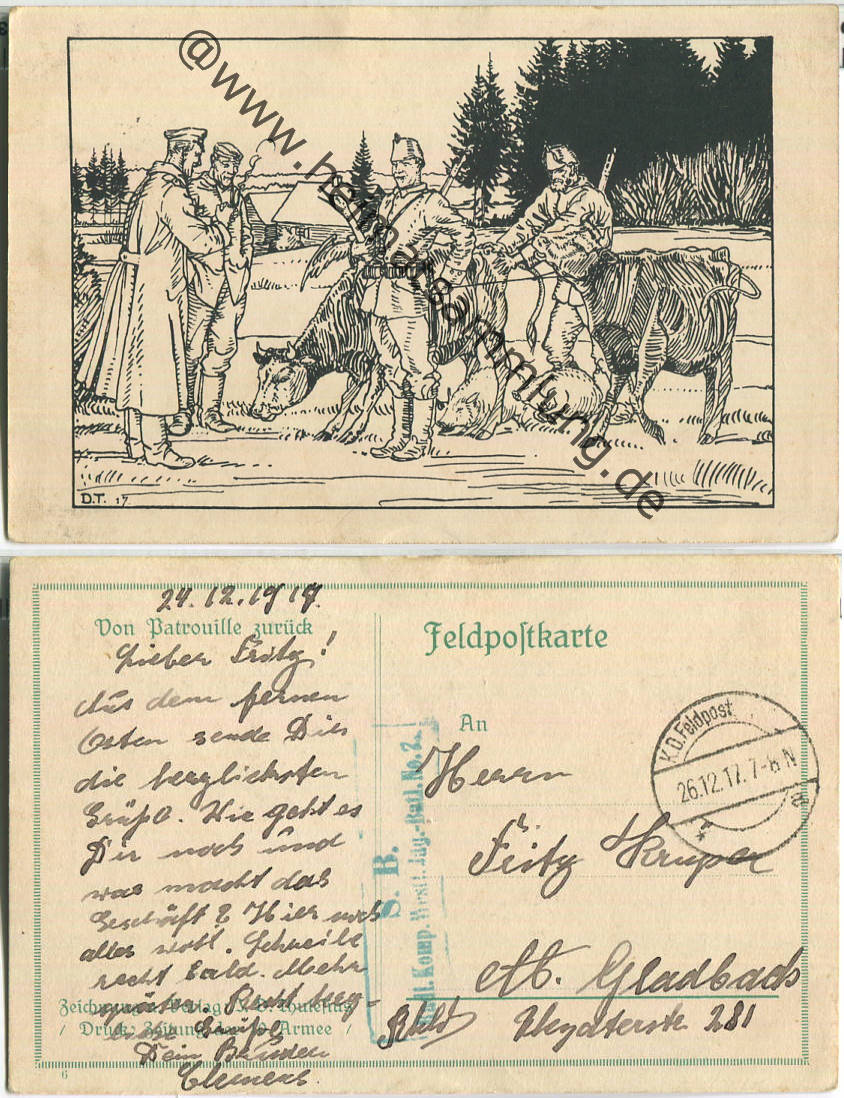 @www.heimatsammlung.de
D.T. 17.
24.12.1917.
Von Patrouille zurück
Lieber Fritz!
Aus dem fernen
Osten sende Dir
die herzlichsten
Grüße. Wie geht es
Dir noch und
was macht das
Geschäft? Hier noch
alles wohl. Schreibe
recht bald. Mehr
später. Recht herz-
Zeichnung u. Verlag
Druck: Zeitung der 10. Armee
Grüße
Dein Bruder
Clemens.
6
Feldpostkarte
An
Herrn
Fritz
M. Gladbach
Rhld
281
K.D. Feldpost
26.12.17. 7-8 N
S. B.
Komp. Batl. No. 2